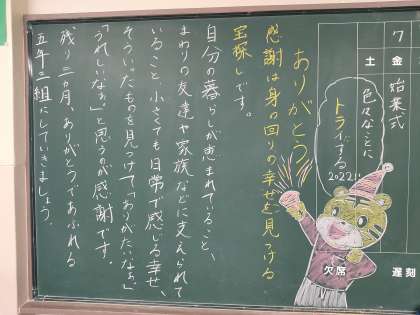 7
金
土
始業式
色々なことに
トライする
2022!!
欠席
遅刻
ありがとう
感謝は身の回りの幸せを見つける
宝探しです。
自分の暮らしが恵まれていること、
まわりの友達や家族などに支えられて
いること、小さくても日常で感じる幸せ、
そういったものを見つけて「ありがたいなぁ」
「うれしいなぁ」と思うのが感謝です。
残り三カ月、ありがとうであふれる
五年二組にしていきましょう。